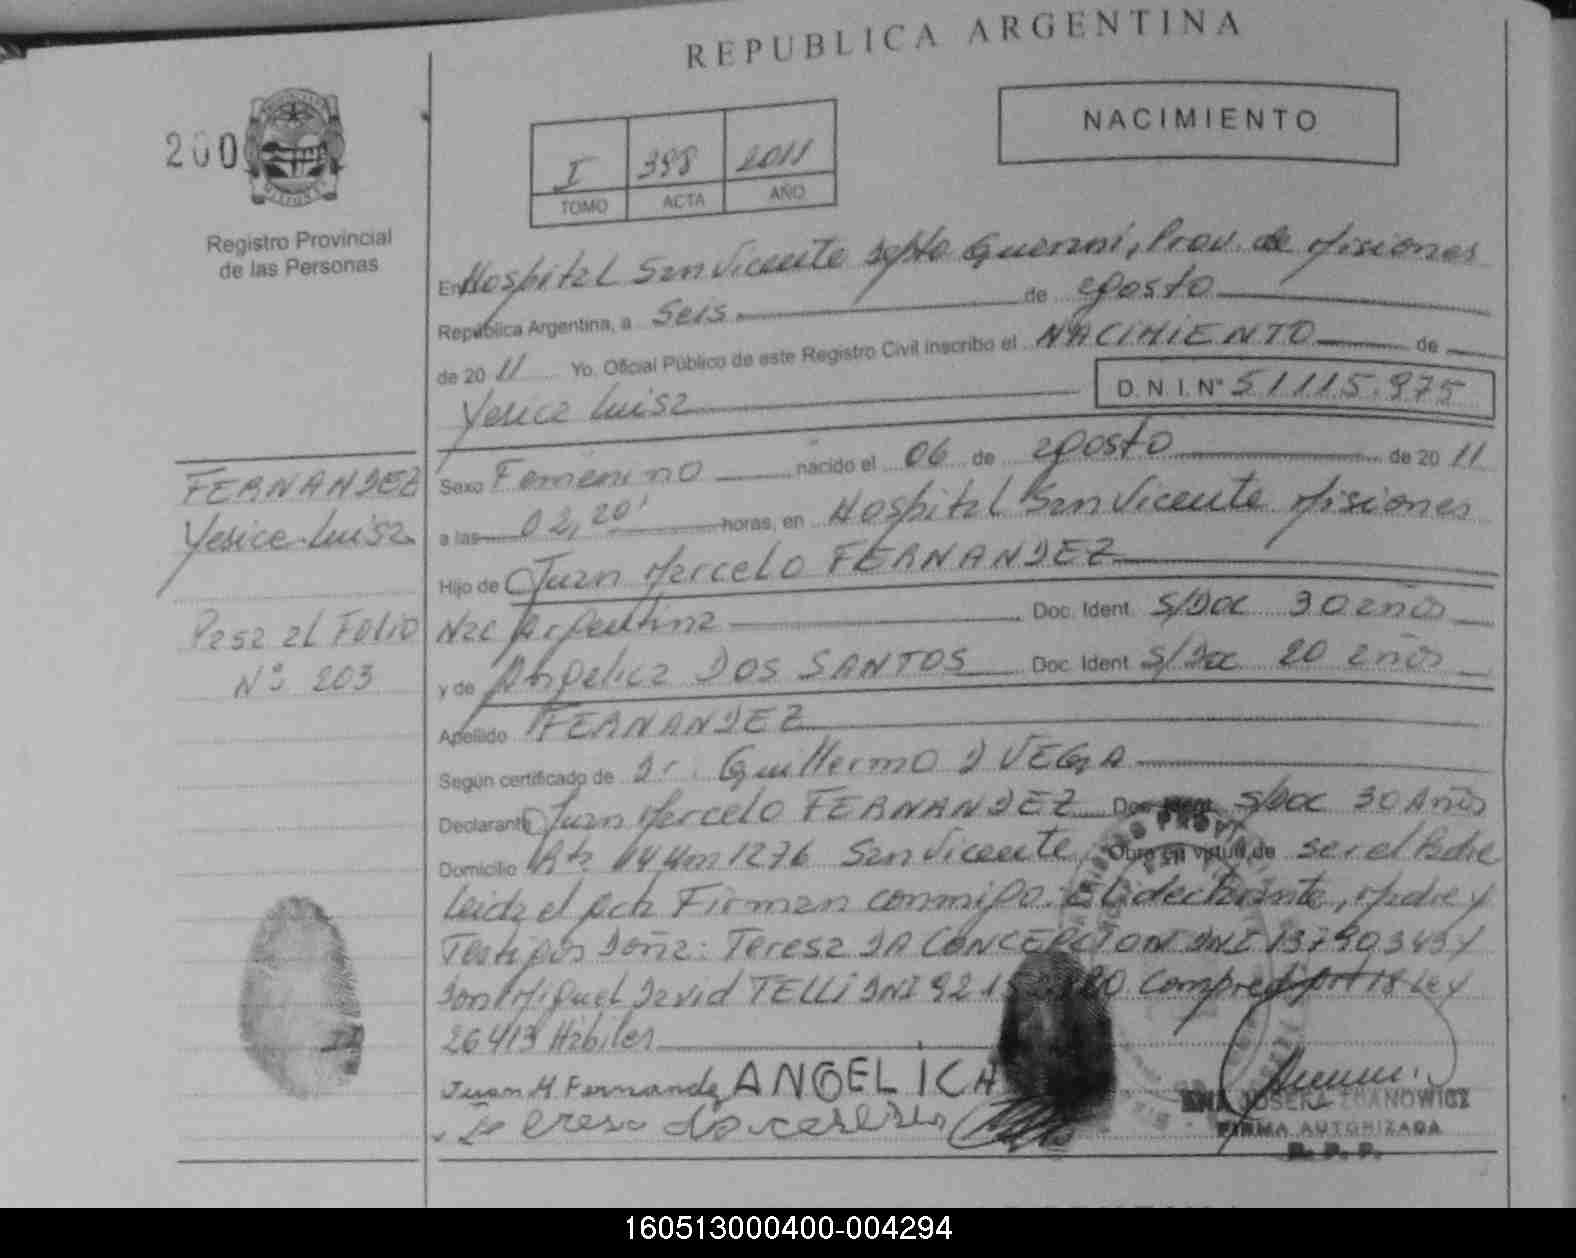 REPUBLICA ARGENTINA
NACIMIENTO
200
I 398 2011
TOMO ACTA AÑO
Registro Provincial
de las Personas
En Hospital San Vicente Dpto Guarani, Prov. de Misiones
República Argentina, a Seis de agosto
de 2011 Yo. Oficial Público de este Registro Civil inscribo el NACIMIENTO de
Yesica Luisa D.N.I.N° 51115.975
FERNANDEZ
Yesica Luisa
Pasa al Folio
Nº 203
Sexo Femenino nacido el 06 de agosto de 2011
a las 02,20' horas, en Hospital San Vicente Misiones
Hijo de Juan Marcelo FERNANDEZ
Nac Argentina Doc. Ident. S/Doc 30 años
y de Angelica DOS SANTOS Doc. Ident. S/Doc 20 años
Apellido FERNANDEZ
Según certificado de Dr. Guillermo D VEGA
Declarante Juan Marcelo FERNANDEZ Doc. Ident. S/Doc 30 Años
Domicilio Rta 14 Km 1276 San Vicente Obra en virtud de ser el Padre
Leida el acta Firman conmigo el declarante, Madre y
Testigos Doña: Teresa DA CONCEPCION DNI y
Don Miguel David TELLI DNI 92 Ley
26413 Habiles
Juan M Fernandez ANGELICA
FIRMA AUTORIZADA
R. P. P.
160513000400-004294